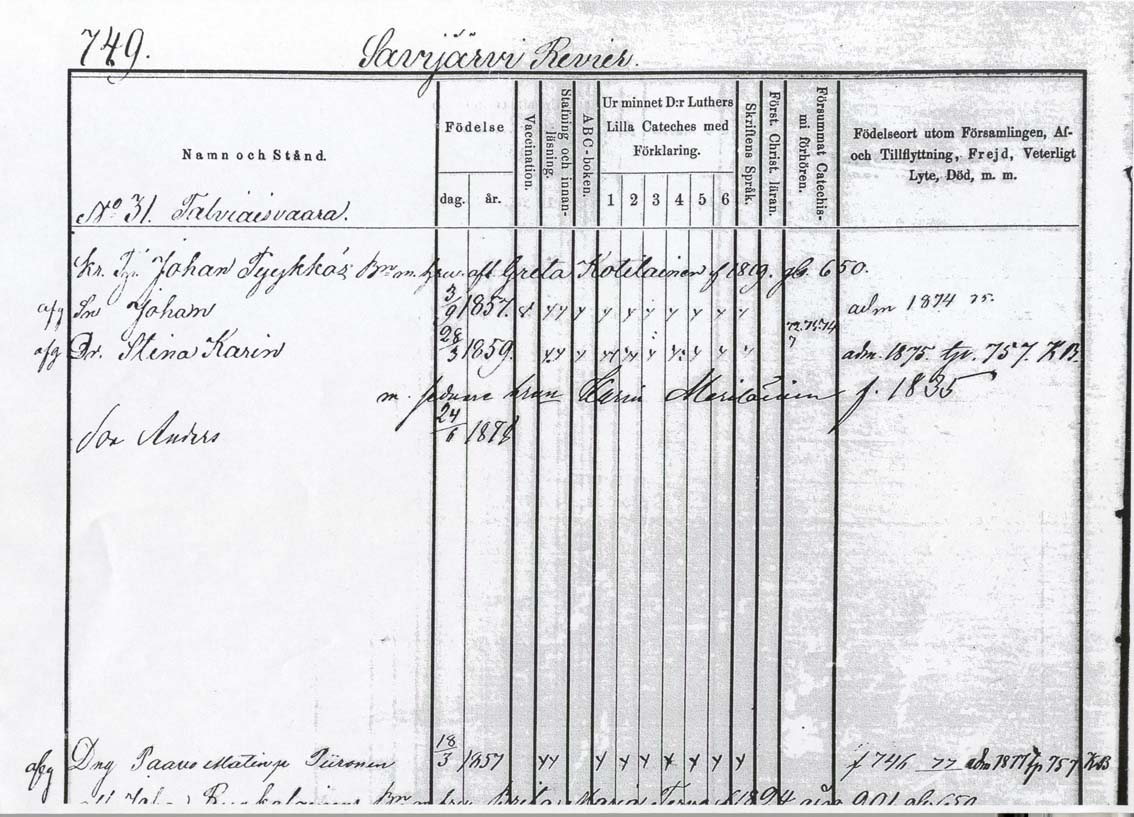 749. Savijärvi Revier.
Namn och Stånd.
Födelse
dag. år.
Vaccination.
Stafning och innan-
läsning.
ABC-boken.
Ur minnet D:r Luthers
Lilla Cateches med
Förklaring.
1 2 3 4 5 6
Skriftens Språk.
Först. Christ. läran.
Försummat Catechis-
mi förhören.
Födelseort utom Församlingen, Af-
och Tillflyttning, Frejd, Veterligt
Lyte, Död, m. m.
No 31. Talviaisvaara.
Kr. Johan Tyykkä Bn m. aft. Greta Kotilainen f 1819. 650.
afg Sn Johan 3/9 1857. adm 1874
afg Dr. Stina Karin 28/3 1859. 72.73.74 adm. 1875. tp. 757. KB.
m. sednare hrun Karin Meriläinen f. 1835
Son Anders 24/6
afg Dng Paavo Matinp Piironen 18/3 1857 f 746 77 adm 1877 tp 757 KB